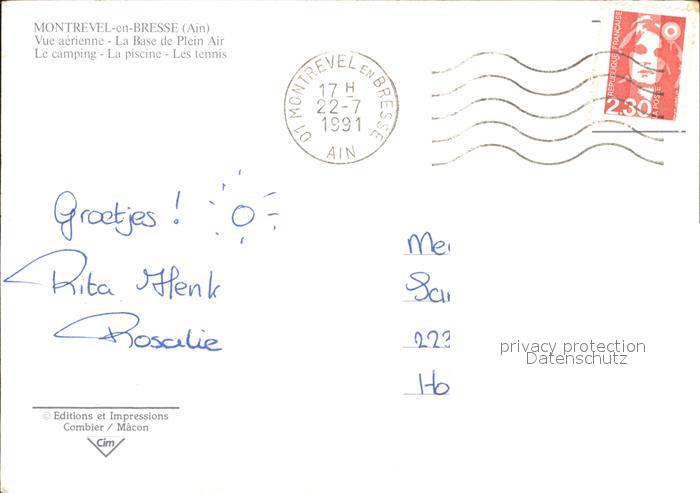 MONTREVEL-en-BRESSE (Ain)
Vue aérienne - La Base de Plein Air
Le camping - La piscine - Les tennis
01 MONTREVEL EN BRESSE
17 H
22-7
1991
AIN
REPUBLIQUE FRANÇAISE
LA POSTE
2,30
Groetjes !
Rita Henk
Rosalie
Me
Sa
223
Ho
privacy protection
Datenschutz
© Editions et Impressions
Combier / Mâcon
Cim